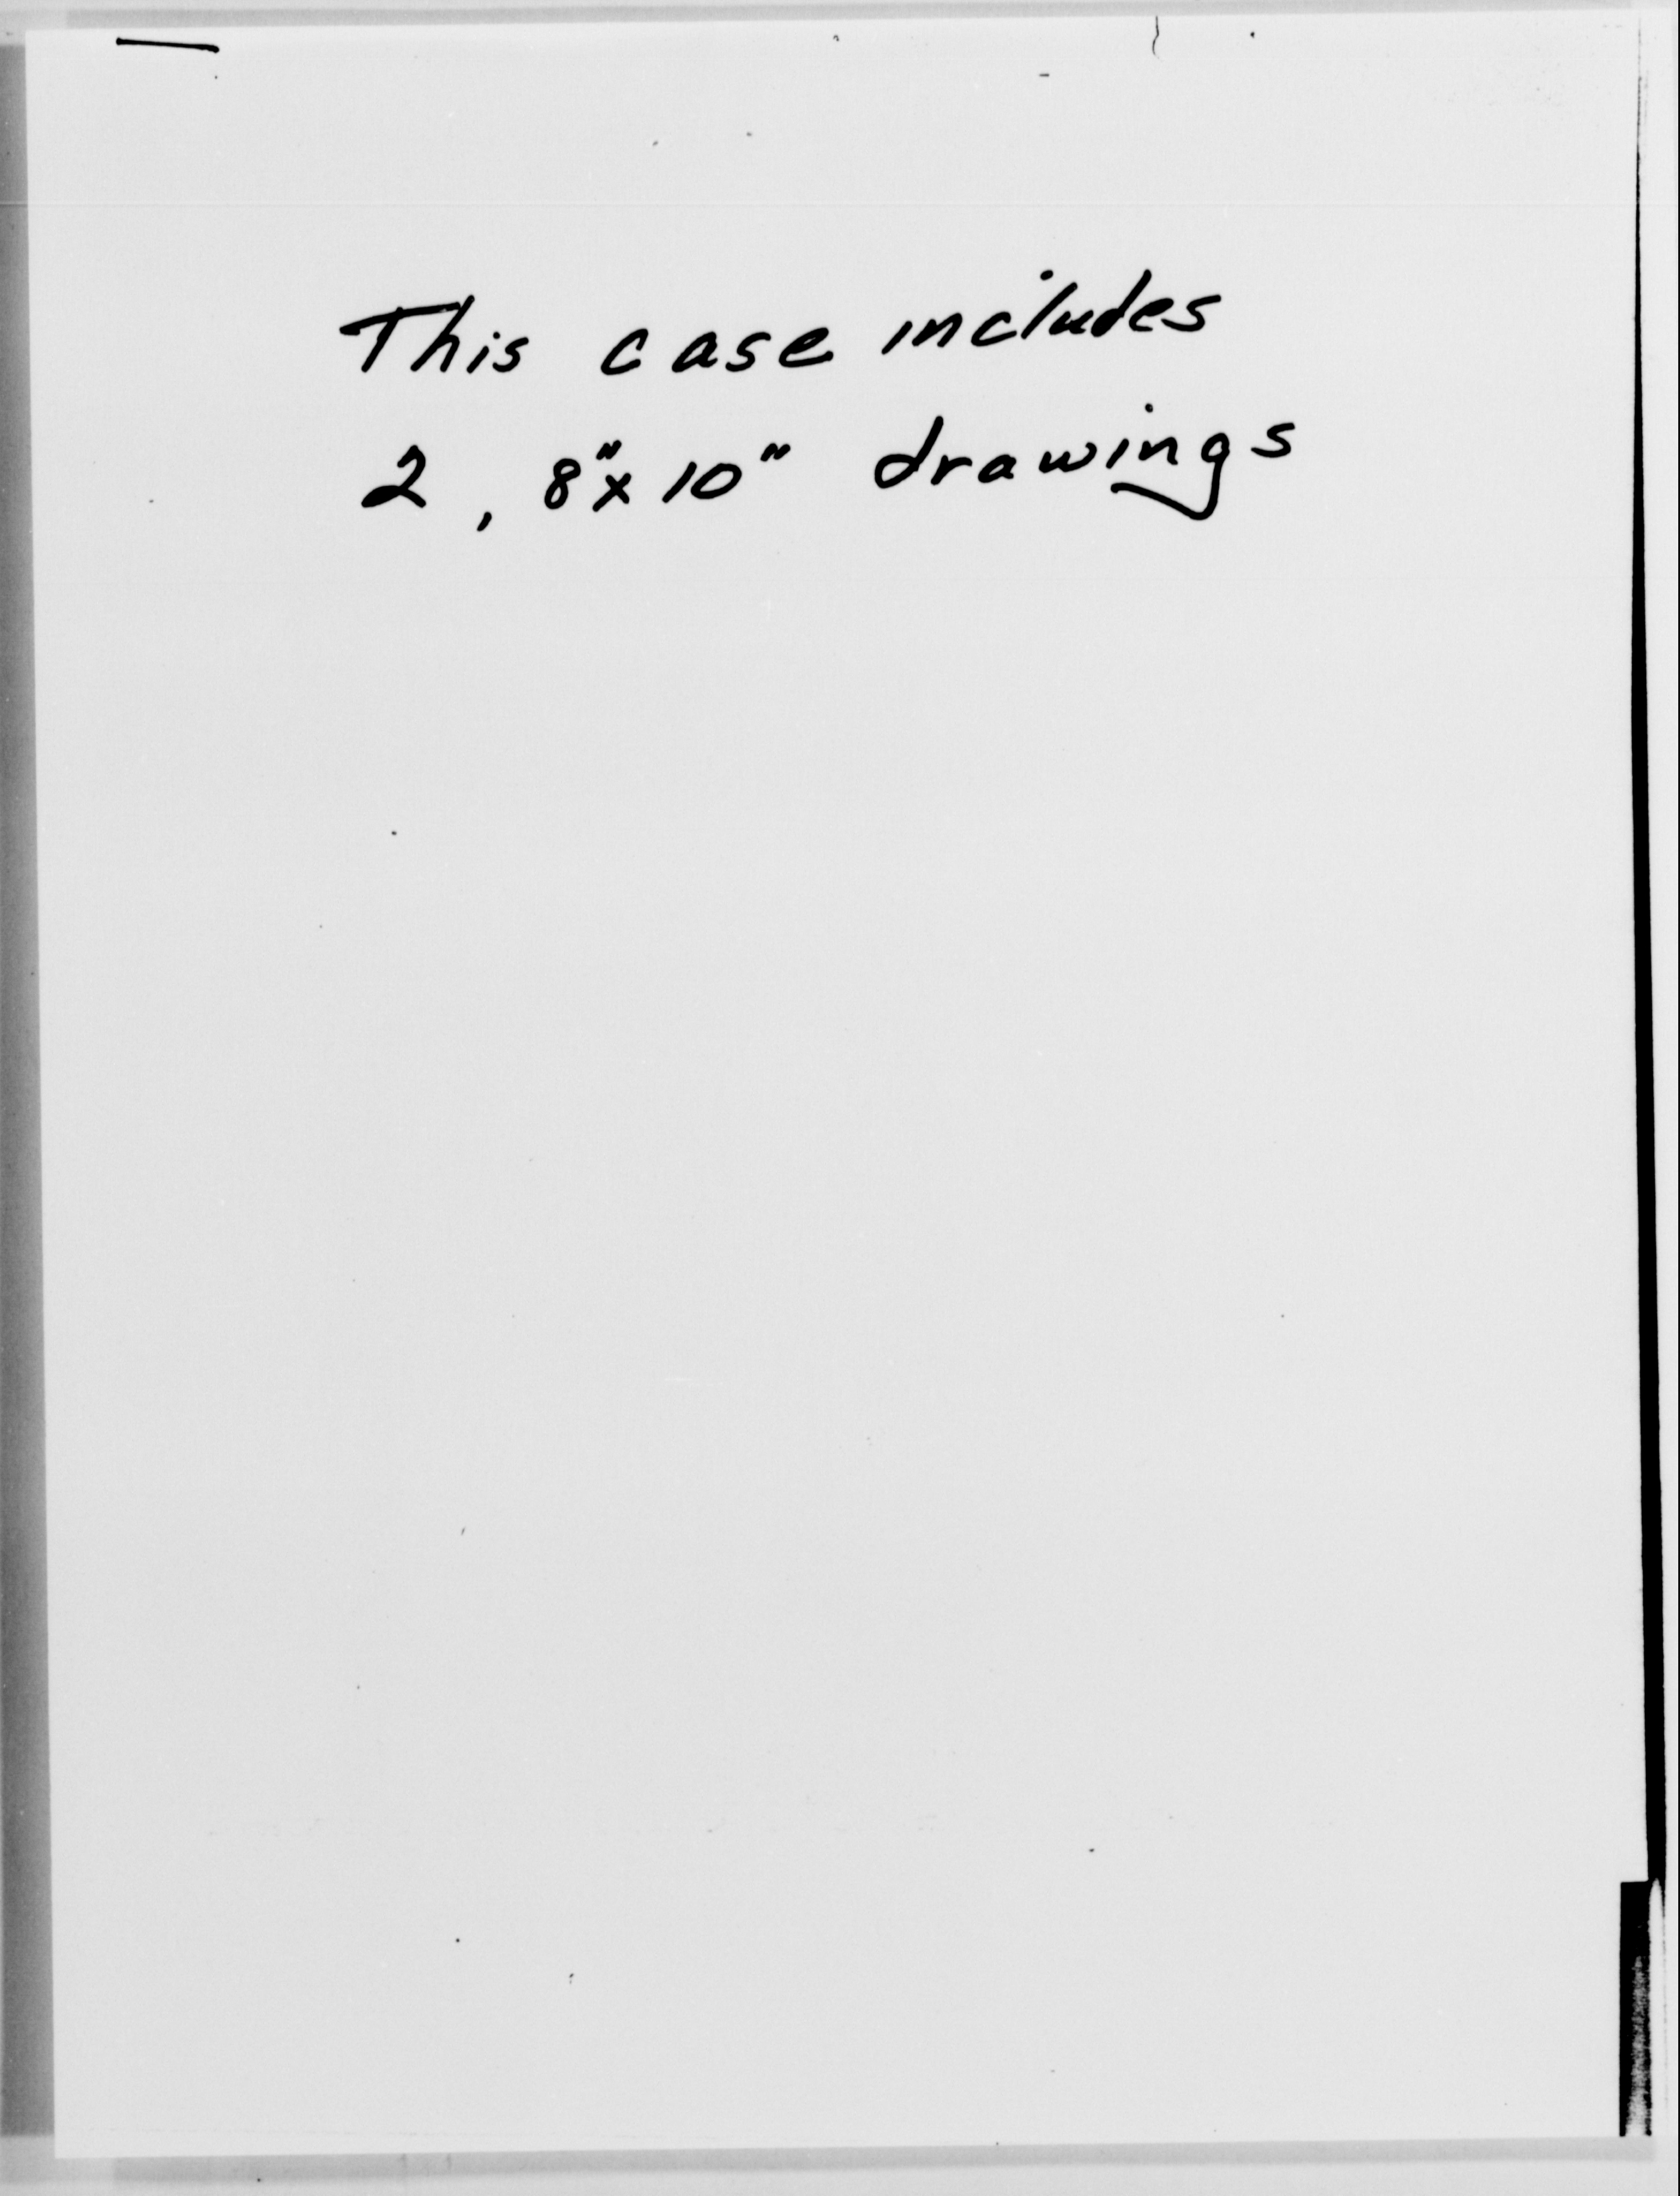 This case includes
2, 8"x 10" drawings